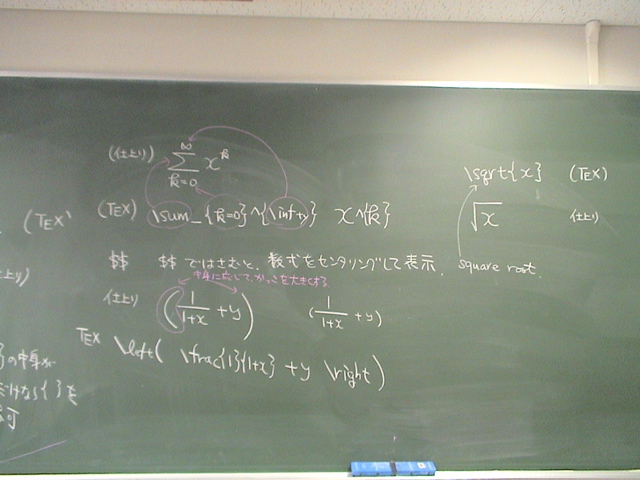 (仕上り) ∞
∑ x^k
k=0
(TEX) \sum_{k=0}^{\infty} x^{k}
$$ $$ ではさむと、数式をセンタリングして表示.
中身に応じて、かっこを大きくする
(仕上り) (1/1+x + y) (1/1+x + y)
TEX \left( \frac{1}{1+x} + y \right)
\sqrt{x} (TEX)
√x (仕上り)
square root.
(TEX)
上り)
}の中身が
だけなら{ }を
可